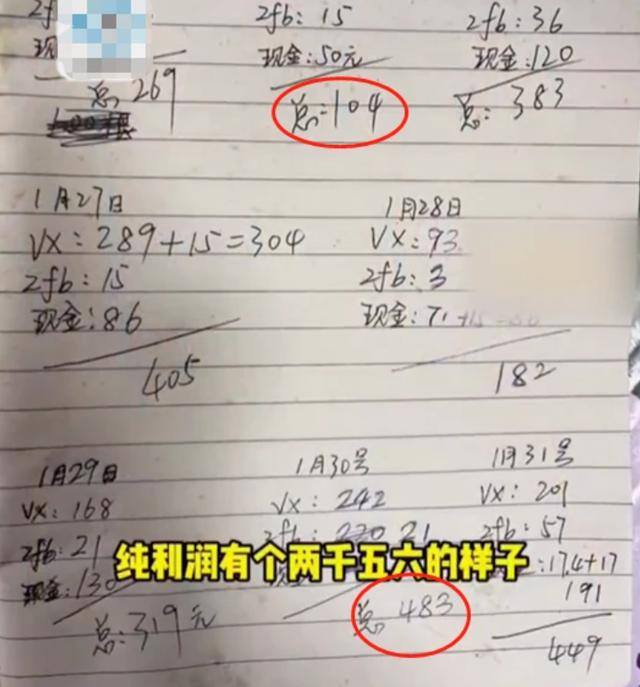 zfb: 15
zfb: 36
现金: 50元
现金: 120
总 269
总: 104
总: 383
1月27日
VX: 289+15=304
zfb: 15
现金: 86
405
1月28日
VX: 93
zfb: 3
现金: 71+15=86
182
1月29日
VX: 168
zfb: 21
现金: 130
总: 319元
1月30号
VX: 242
zfb: 21
总 483
1月31号
VX: 201
zfb: 57
:174+17
191
449
纯利润有个两千五六的样子